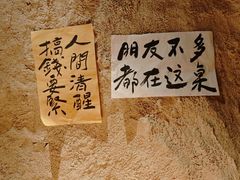 人間清醒
搞錢要緊
朋友不多
都在这桌